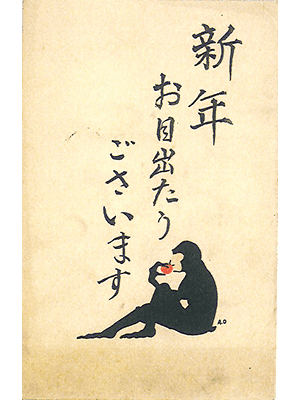 新年
お目出たう
ございます
A.O